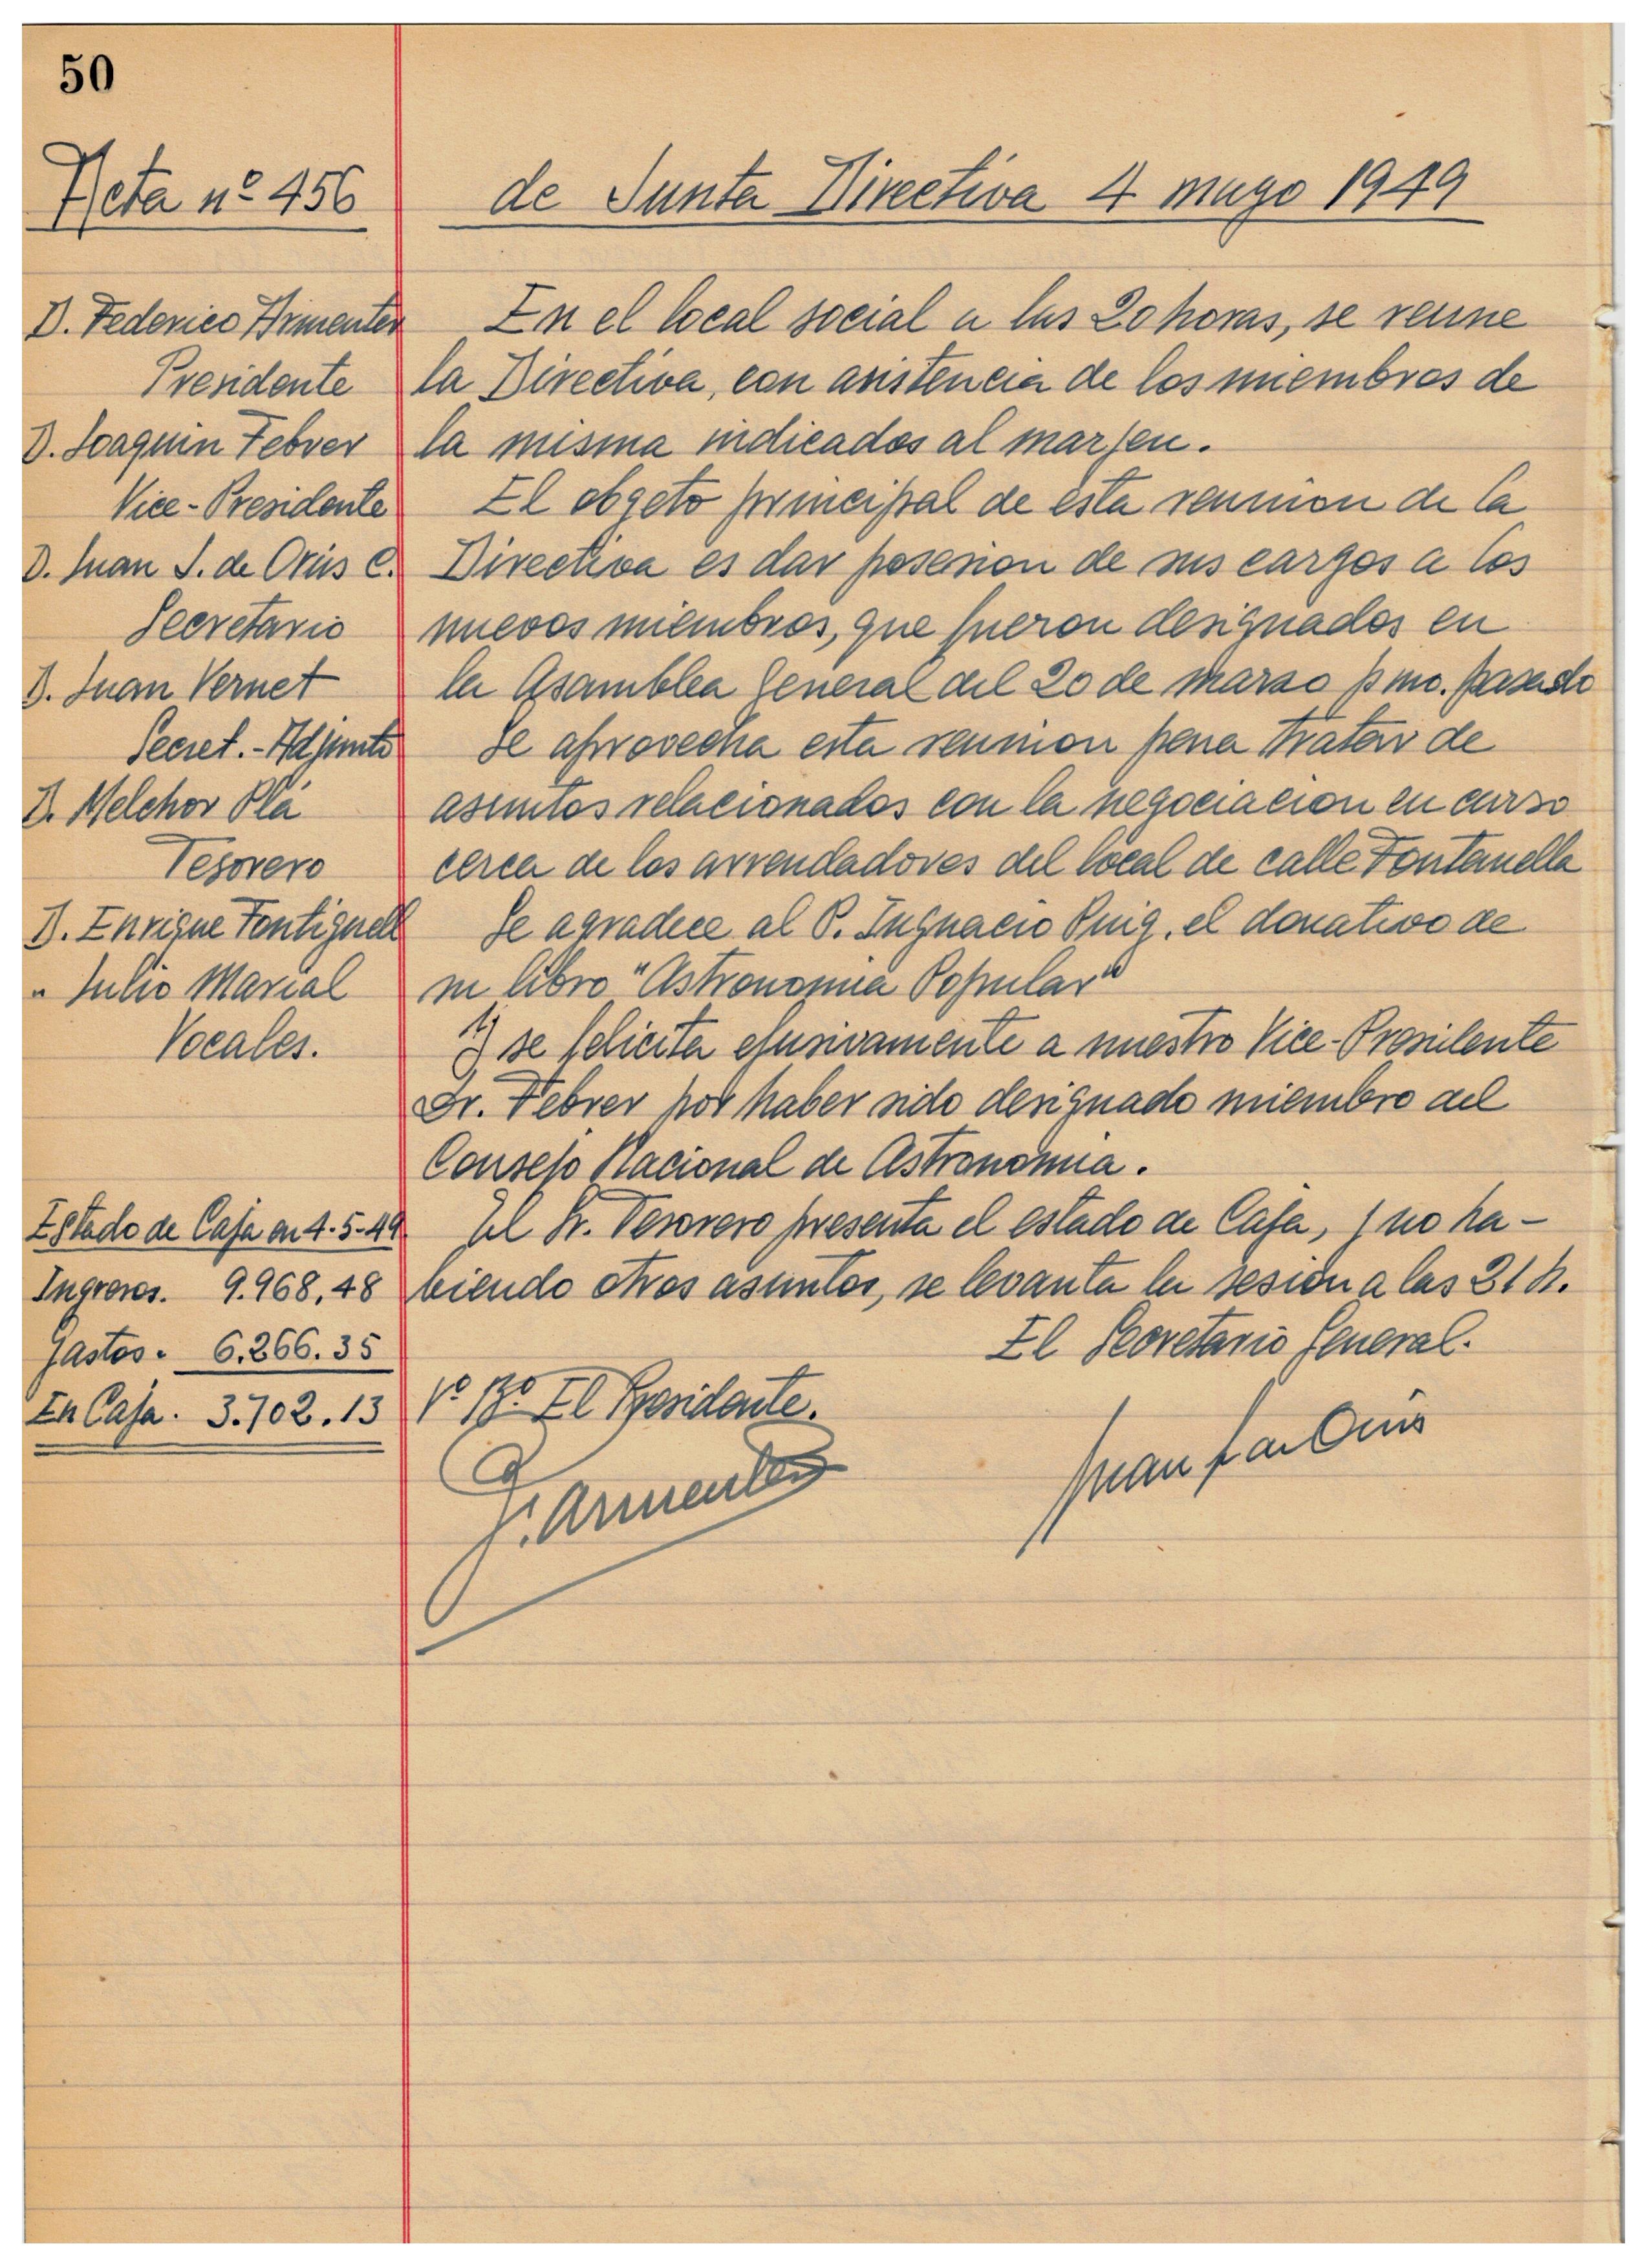 50
Acta nº 456
de Junta Directiva 4 mayo 1949
D. Federico Armenter
Presidente
D. Joaquin Febrer
Vice-Presidente
D. Juan S. de Orús C.
Secretario
D. Juan Vernet
Secret.-Adjunto
D. Melchor Plá
Tesorero
D. Enrique Fontignell
" Julio Marial
Vocales.
Estado de Caja en 4-5-49
Ingresos. 9.968,48
Gastos. 6.266.35
En Caja. 3.702.13
En el local social a las 20 horas, se reune
la Directiva, con asistencia de los miembros de
la misma indicados al marjen.
El obgeto principal de esta reunion de la
Directiva es dar posesion de sus cargos a los
nuevos miembros, que fueron designados en
la Asamblea General del 20 de marzo pmo. pasado
Se aprovecha esta reunion para tratar de
asuntos relacionados con la negociacion en curso
cerca de los arrendadores del local de calle Fontanella
Se agradece al P. Ingnacio Puig, el donativo de
su libro "Astronomia Popular"
Y se felicita efusivamente a nuestro Vice-Presidente
Dr. Febrer por haber sido designado miembro del
Consejo Nacional de Astronomia.
El Sr. Tesorero presenta el estado de Caja, y no ha-
biendo otros asuntos, se levanta la sesión a las 21 h.
El Secretario General.
Vº Bº El Presidente.
F. Armenter
Juan S de Orús